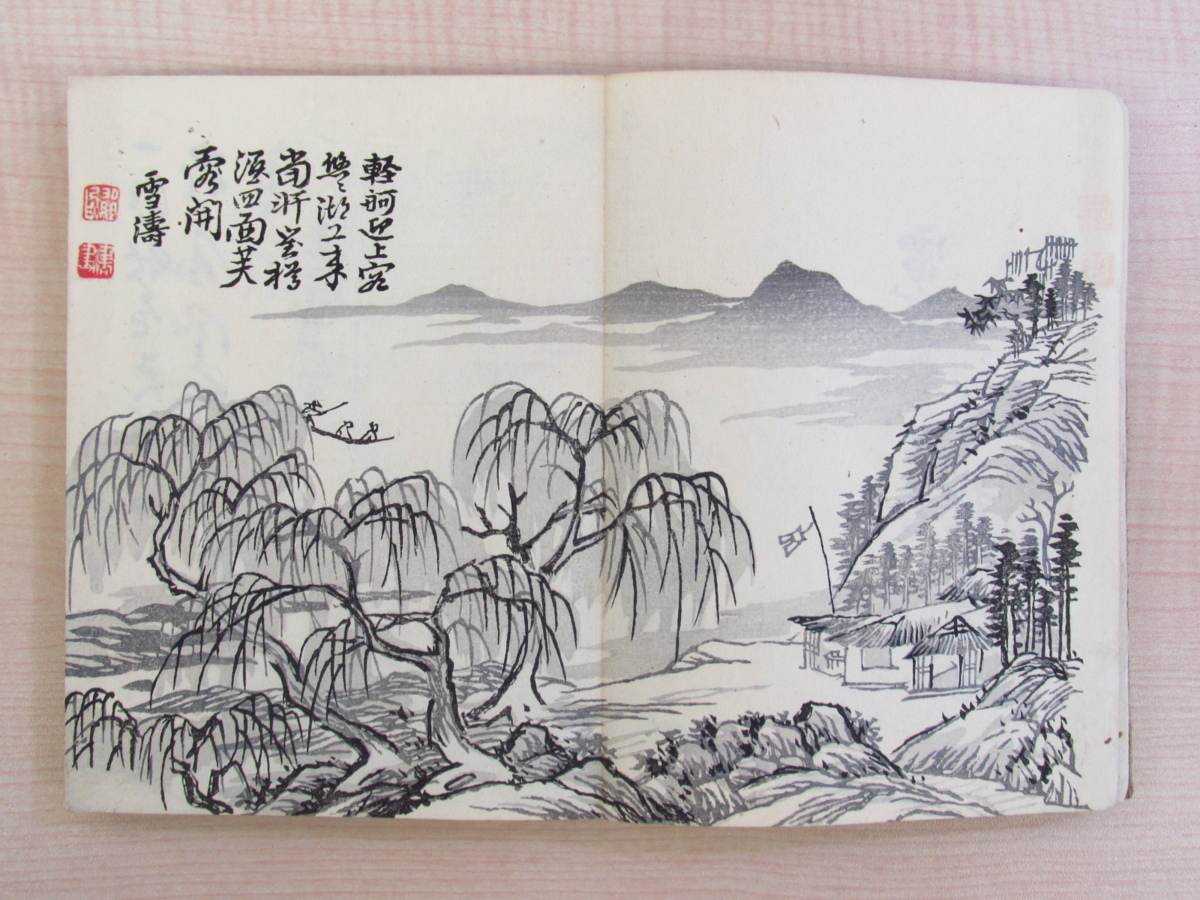 軽舸迎上客
悠々湖上来
当軒对樽
酒四面芙
蓉開
雪濤